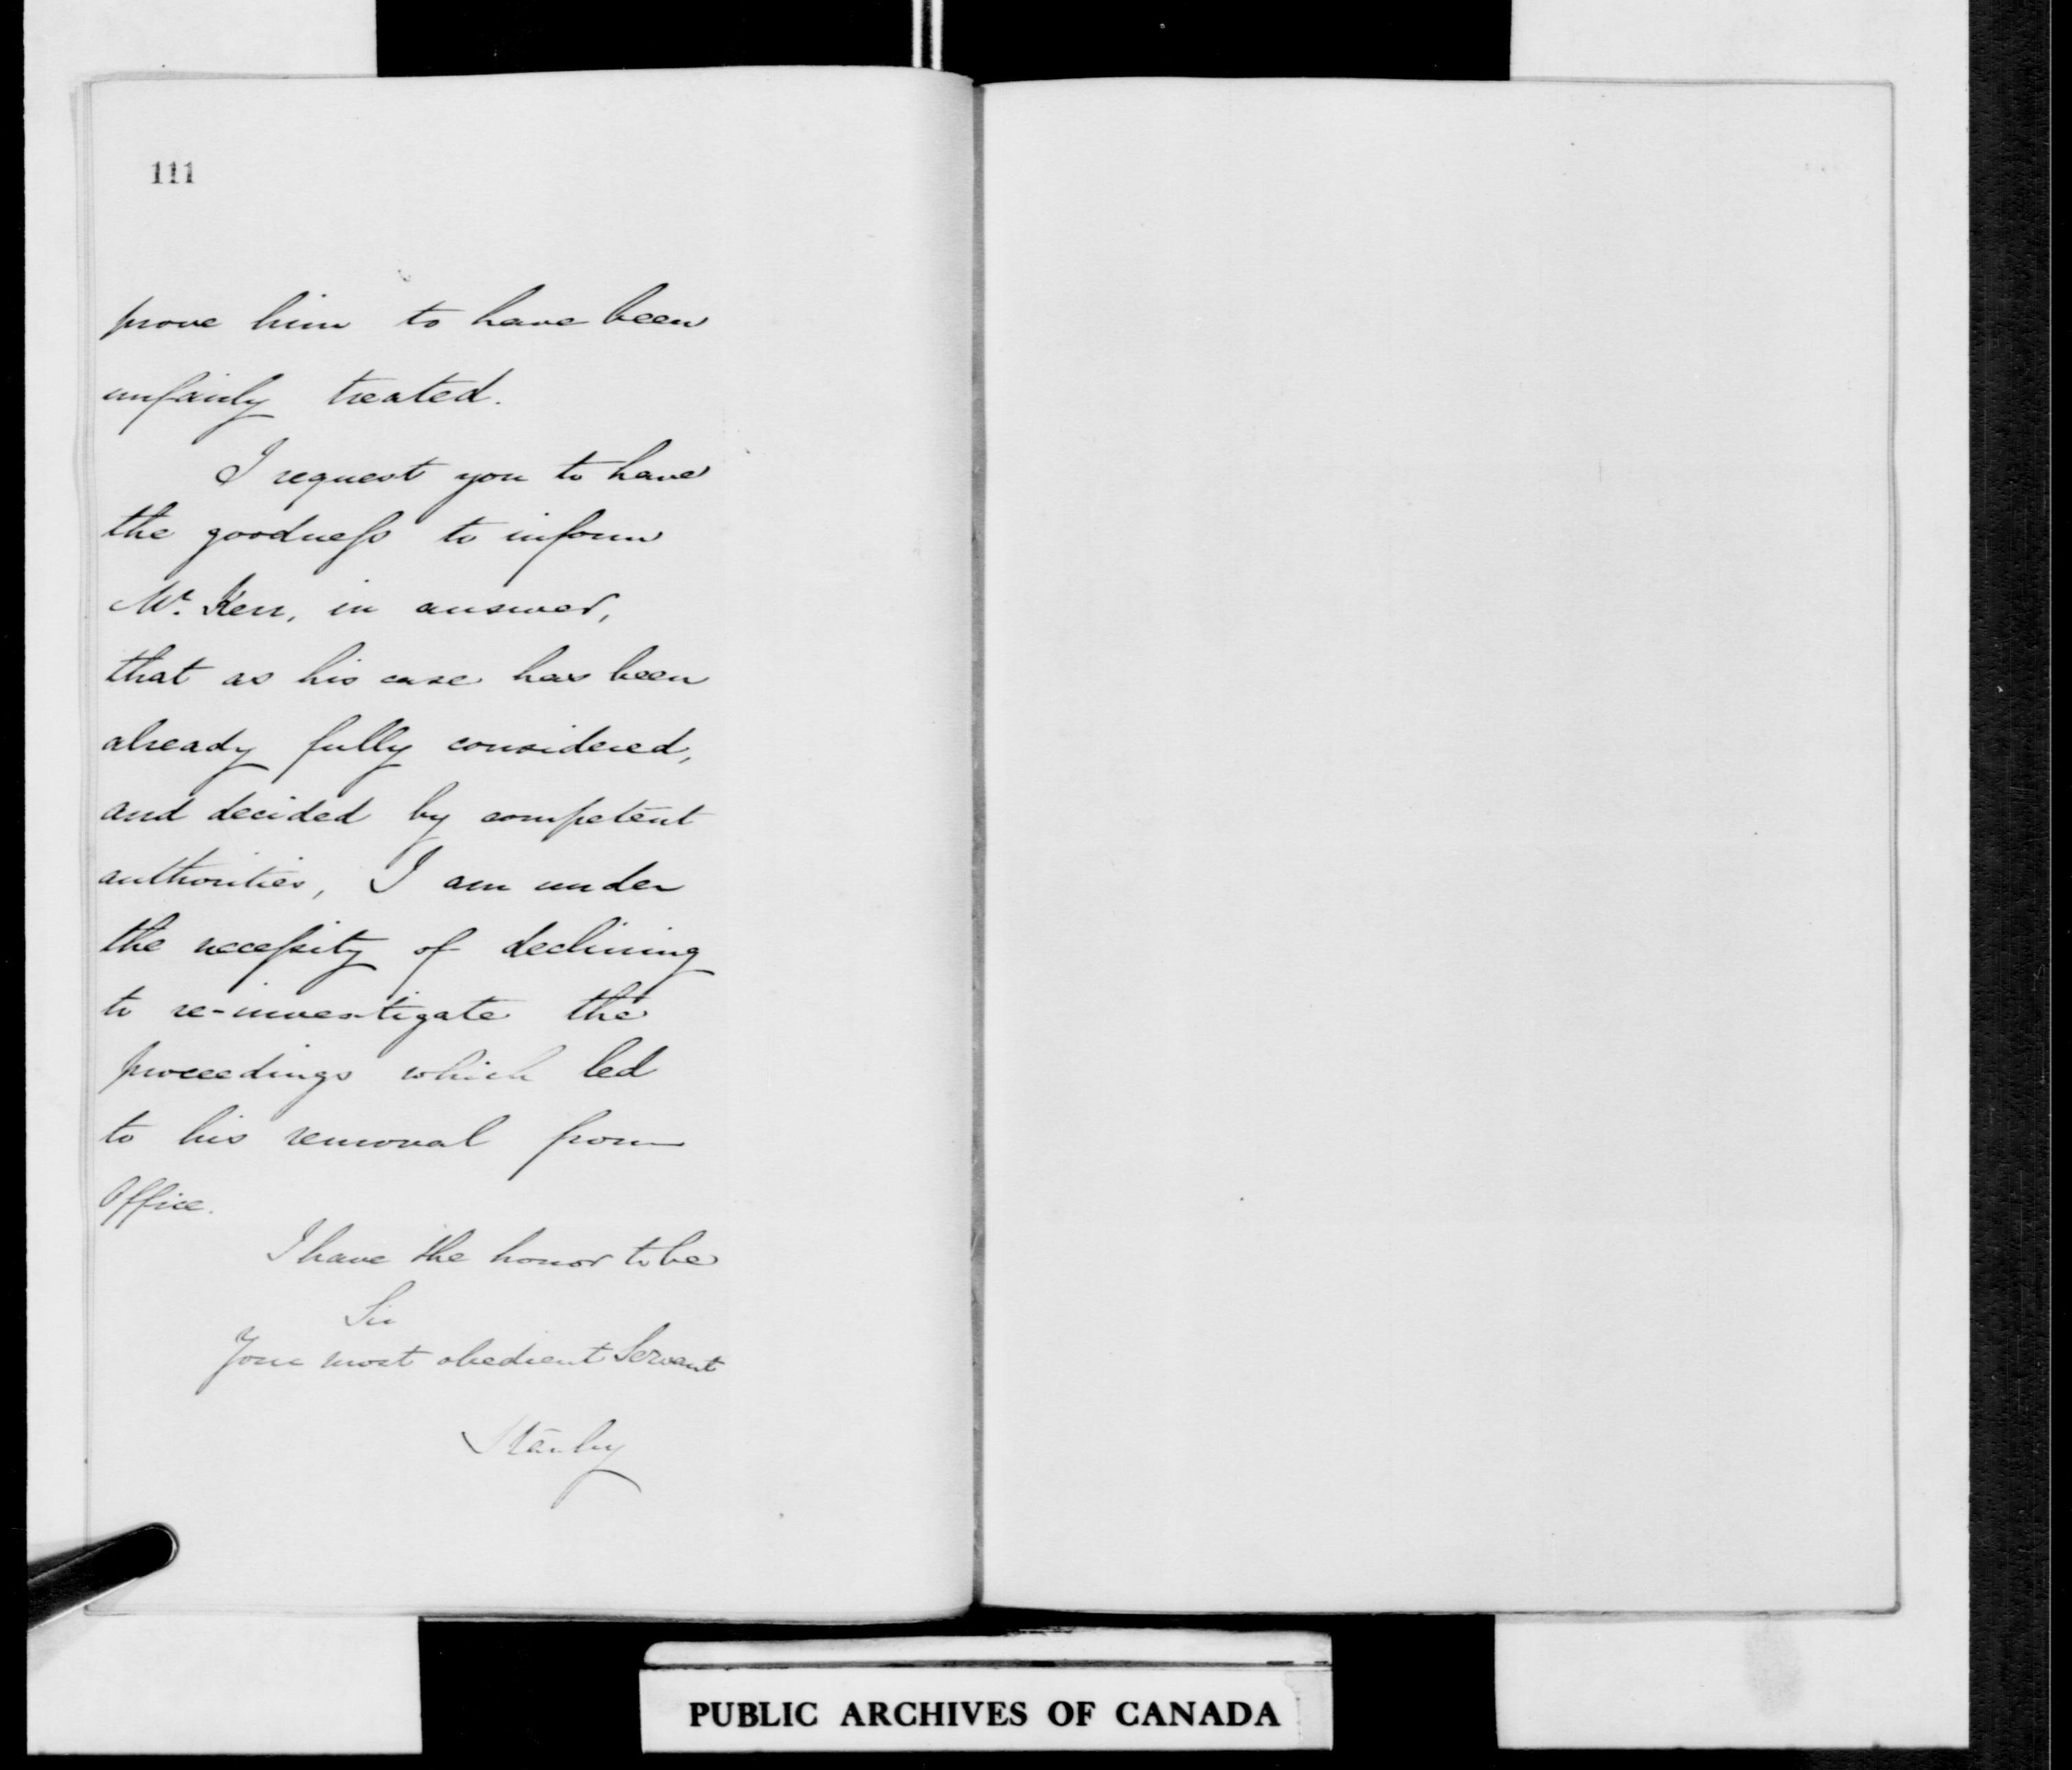 111
prove him to have been
unfairly treated.
I request you to have
the goodneſs to inform
Mr. Kerr, in answer,
that as his case has been
already fully considered,
and decided by competent
authorities, I am under
the neceſsity of declining
to re-investigate the
proceedings which led
to his removal from
Office.
I have the honor to be
Sir
Your most obedient Servant
Stanley
PUBLIC ARCHIVES OF CANADA